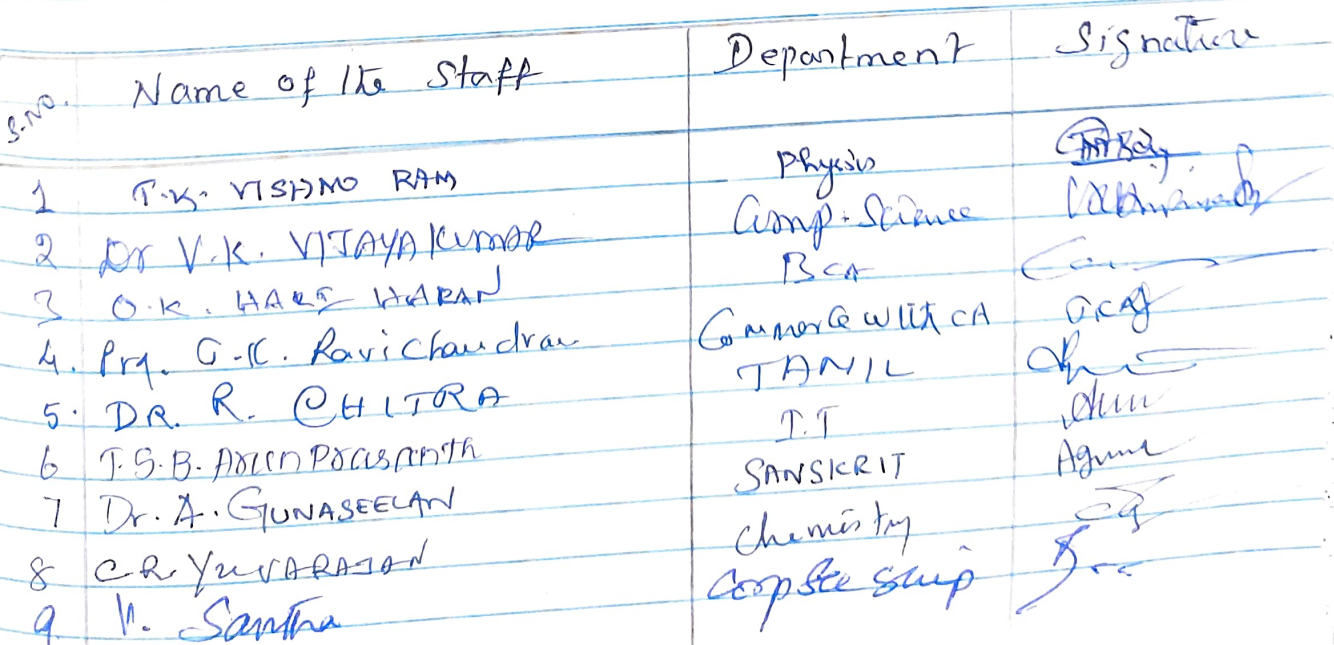 S.NO. Name of the Staff Department Signature
1 T.K. VISHNO RAM Physics
2 Dr V.K. VIJAYAKUMAR Comp. Science
3 O.K. HARI HARAN BCA
4. G.K. Ravichandran Commerce with CA
5. DR. R. CHITRA TAMIL
6 T.S.B. Arun Prasanth I.T
7 Dr. A. GUNASEELAN SANSKRIT
8 C.R. YUVARAJAN Chemistry
9 V. Santha